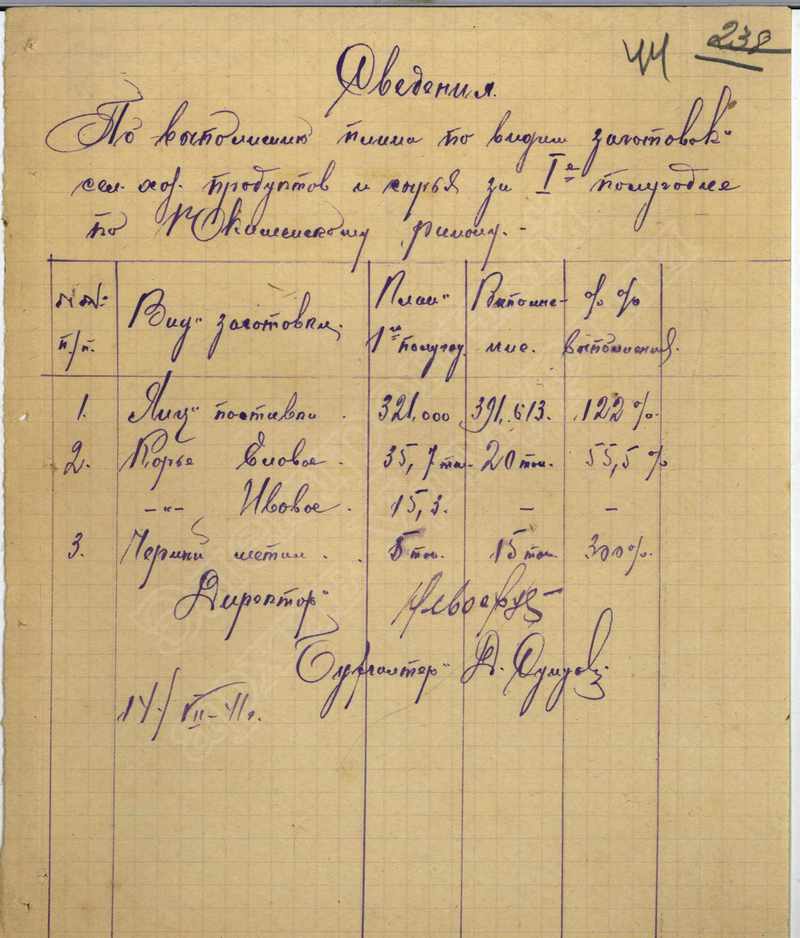 44 238
Сведения.
По выполнению плана по видам заготовок
сел. хоз. продуктов и сырья за I-е полугодие
по Юкаменскому району. -
№№ п/п. Вид заготовки План 1-го полугод. Выполнение. % % выполнения.
1. Яиц поставки . 321.000 391.613. 122%.
2. Корье Еловое . 35,7 тн. 20 тон. 55,5 %
-"- Ивовое . 15,3. - -
3. Черный метал . . 5 тон. 15 тон. 300%.
Директор
Бухгалтер Д.
14/VII-41г.